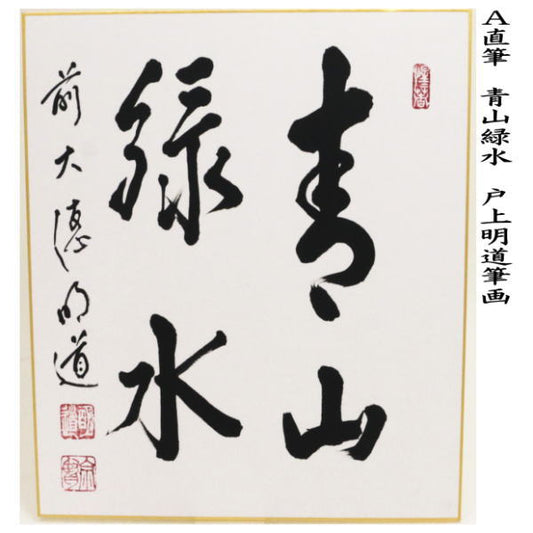 A直筆　青山緑水　戸上明道筆画
青山
緑水
前大徳明道